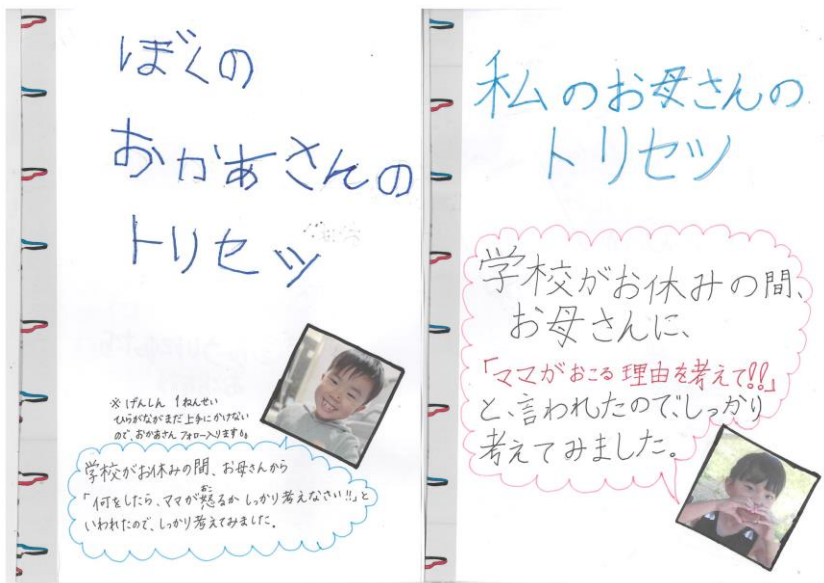 ぼくの
おかあさんの
トリセツ
※ げんしん 1ねんせい
ひらがながまだ上手にかけない
ので、おかあさんフォロー入ります。
学校がお休みの間、お母さんから
「何をしたら、ママが怒るかしっかり考えなさい!!」と
おこ
いわれたので、しっかり考えてみました。
私のお母さんの
トリセツ
学校がお休みの間、
お母さんに、
「ママがおこる理由を考えて!!」
と、言われたので、しっかり
考えてみました。